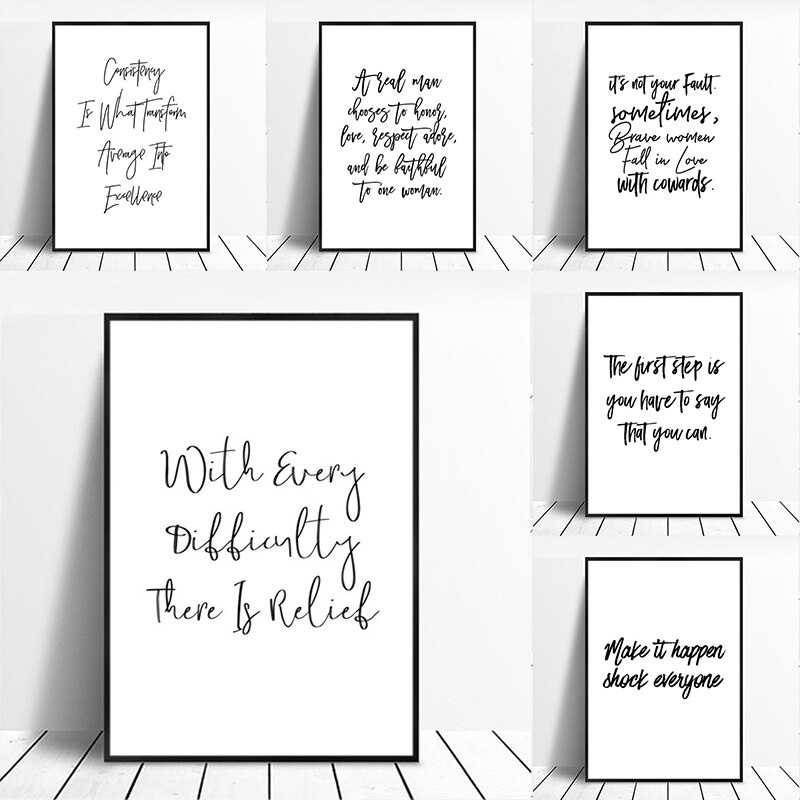 Consistency
Is What Transform
Average Into
Excellence
A real man
chooses to honor,
love, respect adore,
and be faithful
to one woman.
it's not your Fault.
sometimes,
Brave women
Fall in Love
with cowards.
With Every
Difficulty
There Is Relief
The first step is
you have to say
that you can.
Make it happen
shock everyone